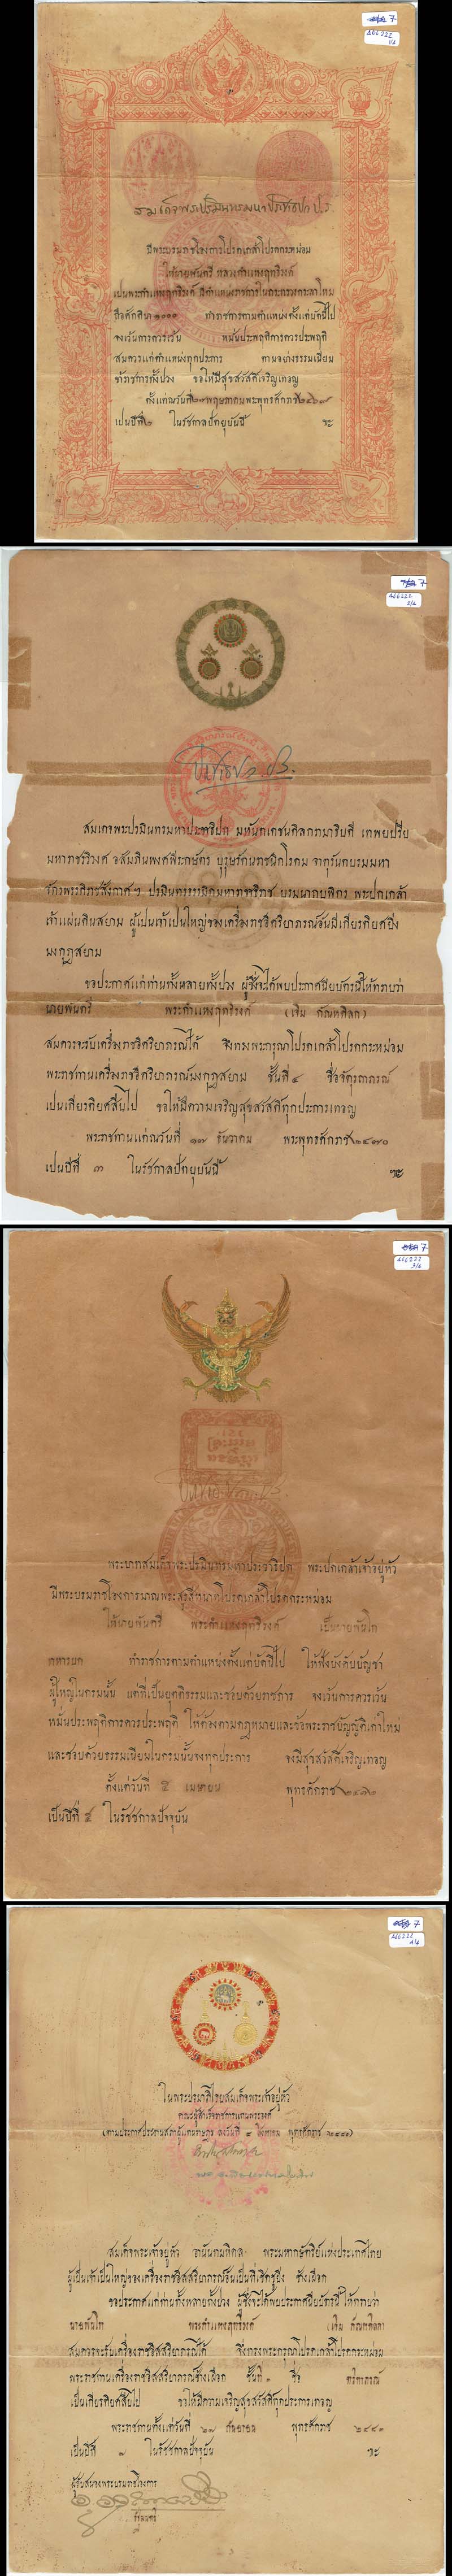 7
A66222
1/4
สมเด็จพระปรมินทรมหาประชาธิปก ป.ร.
มีพระบรมราชโองการโปรดเกล้าโปรดกระหม่อม
ให้นายพันตรี หลวงกำแหงฤทธิรงค์
เป็นพระกำแหงฤทธิรงค์ มีตำแหน่งราชการในกระทรวงกระลาโหม
ถือศักดินา ๑๐๐๐ ทำราชการตามตำแหน่งตั้งแต่บัดนี้ไป
จงเว้นการควรเว้น หมั่นประพฤติการควรประพฤติ
สมควรแก่ตำแหน่งทุกประการ ตามอย่างธรรมเนียม
ข้าราชการทั้งปวง ขอให้มีสุขสวัสดิ์เจริญเทอญ
ตั้งแต่ณวันที่ พฤษภาคม พระพุทธศักราช ๒๔๖๙
เป็นปีที่ ๒ ในรัชกาลปัตยุบันนี้
7
A66222
2/4
ประชาธิปก ปร.
สมเด็จพระปรมินทรมหาประชาธิปก มหันตเดชนดิลกรามาธิบดี เทพยปรีย
มหาราชรวิวงศ์ อสัมภินพงศพีระกษัตร บุรุษรัตนราชนิกโรดม จาตุรันตบรมมหา
จักรพรรดิราชสังกาศ ฯ ปรมินทรธรรมิกมหาราชาธิราช บรมนาถบพิตร พระปกเกล้า
เจ้าแผ่นดินสยาม ผู้เป็นเจ้าเป็นใหญ่ของเครื่องราชอิศริยาภรณ์อันมีเกียรติยศยิ่ง
มงกุฎสยาม
ขอประกาศแก่ท่านทั้งหลายทั้งปวง ผู้ซึ่งจะได้พบประกาศนียบัตรนี้ให้ทราบว่า
นายพันตรี พระกำแหงฤทธิรงค์ (เจิม กัณหดิลก)
สมควรจะรับเครื่องราชอิศริยาภรณ์ได้ จึงทรงพระกรุณาโปรดเกล้าโปรดกระหม่อม
พระราชทานเครื่องราชอิศริยาภรณ์มงกุฎสยาม ชั้นที่ ๔ ชื่อจัตุรถาภรณ์
เป็นเกียรติยศสืบไป ขอให้มีความเจริญสุขสวัสดิ์ทุกประการเทอญ
พระราชทานแต่ณวันที่ ๑๗ ธันวาคม พระพุทธศักราช ๒๔๗๐
เป็นปีที่ ๓ ในรัชกาลปัตยุบันนี้
7
A66222
3/4
ประชาธิปก ปร.
พระบาทสมเด็จพระปรมินทรมหาประชาธิปก พระปกเกล้าเจ้าอยู่หัว
มีพระบรมราชโองการมาณพระสุรสีหนาทโปรดเกล้าโปรดกระหม่อม
ให้นายพันตรี พระกำแหงฤทธิรงค์ เป็นนายพันโท
ทหารบก ทำราชการตามตำแหน่งตั้งแต่บัดนี้ไป ให้ฟังบังคับบัญชา
ผู้ใหญ่ในกรมนั้น แต่ที่เป็นยุติธรรมและชอบด้วยราชการ จงเว้นการควรเว้น
หมั่นประพฤติการควรประพฤติ ให้ต้องตามกฎหมายและข้อพระราชบัญญัติเก่าใหม่
และชอบด้วยธรรมเนียมในกรมนั้นจงทุกประการ จงมีสุขสวัสดิ์เจริญเทอญ
ตั้งแต่วันที่ เมษายน พุทธศักราช
เป็นปีที่ ในรัชชกาลปัจจุบัน
7
A66222
4/4
ในพระปรมาภิไธยสมเด็จพระเจ้าอยู่หัว
คณะผู้สำเร็จราชการแทนพระองค์
(ตามประกาศประธานสภาผู้แทนราษฎร ลงวันที่ ๔ สิงหาคม พุทธศักราช ๒๔๘๐)
สมเด็จพระเจ้าอยู่หัว อานันทมหิดล พระมหากษัตริย์แห่งประเทศไทย
ผู้เป็นเจ้าเป็นใหญ่ของเครื่องราชอิสสริยาภรณ์อันเป็นที่เชิดชูยิ่ง ช้างเผือก
ขอประกาศแก่ท่านทั้งหลายทั้งปวง ผู้ซึ่งจะได้พบประกาศนียบัตรนี้ ให้ทราบว่า
นายพันโท พระกำแหงฤทธิรงค์ (เจิม กัณหดิลก)
สมควรจะรับเครื่องราชอิสสริยาภรณ์ได้ จึงทรงพระกรุณาโปรดเกล้าโปรดกระหม่อม
พระราชทานเครื่องราชอิสสริยาภรณ์ช้างเผือก ชั้นที่ ๓ ชื่อ ตริตาภรณ์
เป็นเกียรติยศสืบไป ขอให้มีความเจริญสุขสวัสดิ์ทุกประการเทอญ
พระราชทานตั้งแต่วันที่ กันยายน พุทธศักราช
เป็นปีที่ ๗ ในรัชชกาลปัจจุบัน
ผู้รับสนองพระบรมราชโองการ
รัฐมนตรี